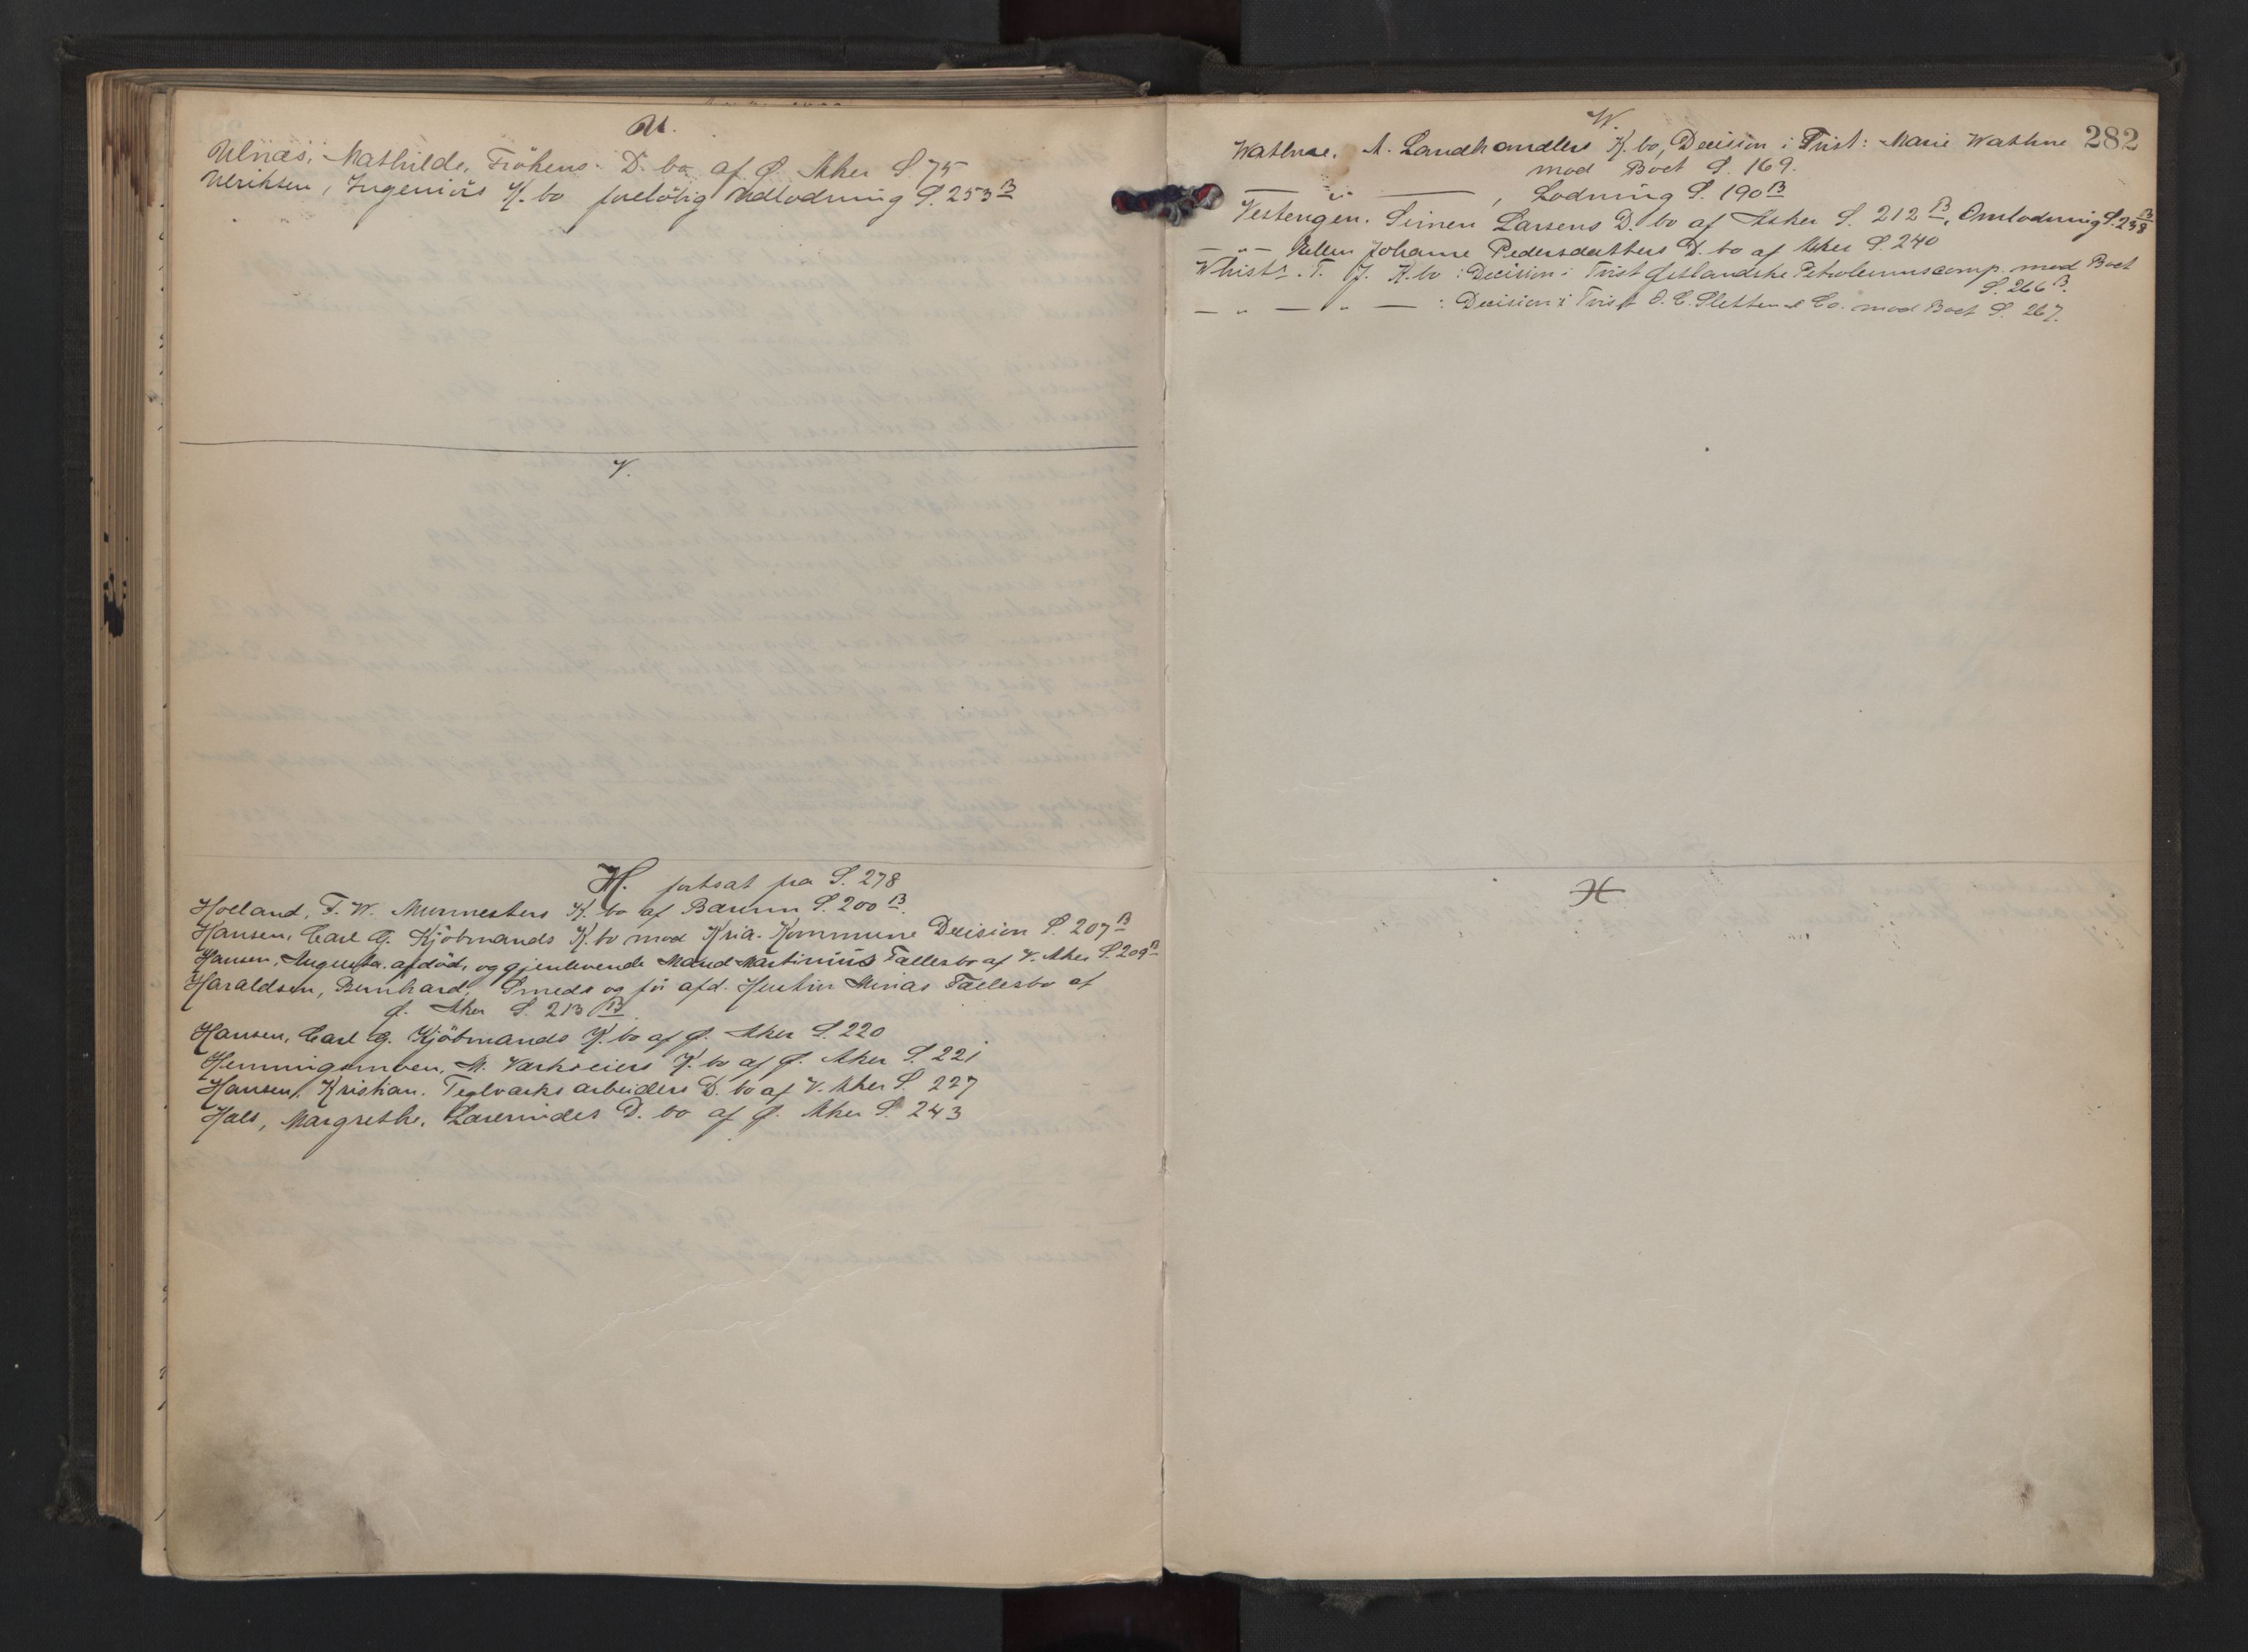 U.
Ulnæs, Mathilde, Frökens D. bo af Ø. Aker S. 75
Ulriksen, Ingeniörs K. bo forelöbig Udlodning S. 253 B
V.
H. fortsat fra S. 278
Holland, F. W. Murmesters K. bo af Bærum S. 200 B.
Hansen, Carl G. Kjöbmands K. bo mod Kria. Kommune Decision S. 207 B
Hansen, Augusta, afdöd, og gjenlevende Mand Martinius Fællesbo af V. Aker S. 209 B
Haraldsen, Bernhard, Smeds og før afd. Hustru Minas Fællesbo af
Ø. Aker S. 213 B.
Hansen, Carl G. Kjöbmands K. bo af Ø. Aker S. 220
Hemmingsmoen, M. Værkseiers K. bo af Ø. Aker S. 221
Hansen, Kristian. Teglværksarbeiders D. bo af V. Aker S. 227
Hals, Margrethe, Lærerindes D. bo af Ø. Aker S. 243
282
W.
Wathne, A. Landhandlers K. bo, Decision i Tvist: Marie Wathne
mod Boet S. 169.
— " — , Lodning S. 190 B
Vestengen, Simen Larsens D. bo af Asker S. 212 B, Omlodning S. 238 B
— " — Ellen Johanne Pedersdatters D. bo af Aker S. 240
Whist, T. J. K. bo : Decision i Tvist Østlandske Petroleumscomp. mod Boet
S. 266 B.
— " — " — : Decision i Tvist O. C. Sletten & Co. mod Boet S. 267.
H